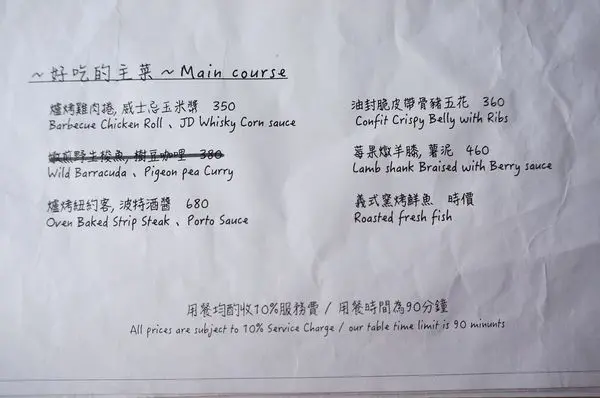 ~好吃的主菜~Main course
爐烤雞肉捲, 威士忌玉米醬 350
Barbecue Chicken Roll 、JD Whisky Corn sauce
野生梭魚, 樹豆咖哩 380
Wild Barracuda 、Pigeon pea Curry
爐烤紐約客, 波特酒醬 680
Oven Baked Strip Steak 、Porto Sauce
油封脆皮帶骨豬五花 360
Confit Crispy Belly with Ribs
莓果燉羊膝, 薯泥 460
Lamb shank Braised with Berry sauce
義式窯烤鮮魚 時價
Roasted fresh fish
用餐均酌收10%服務費 / 用餐時間為90分鐘
All prices are subject to 10% Service Charge / our table time limit is 90 minunts